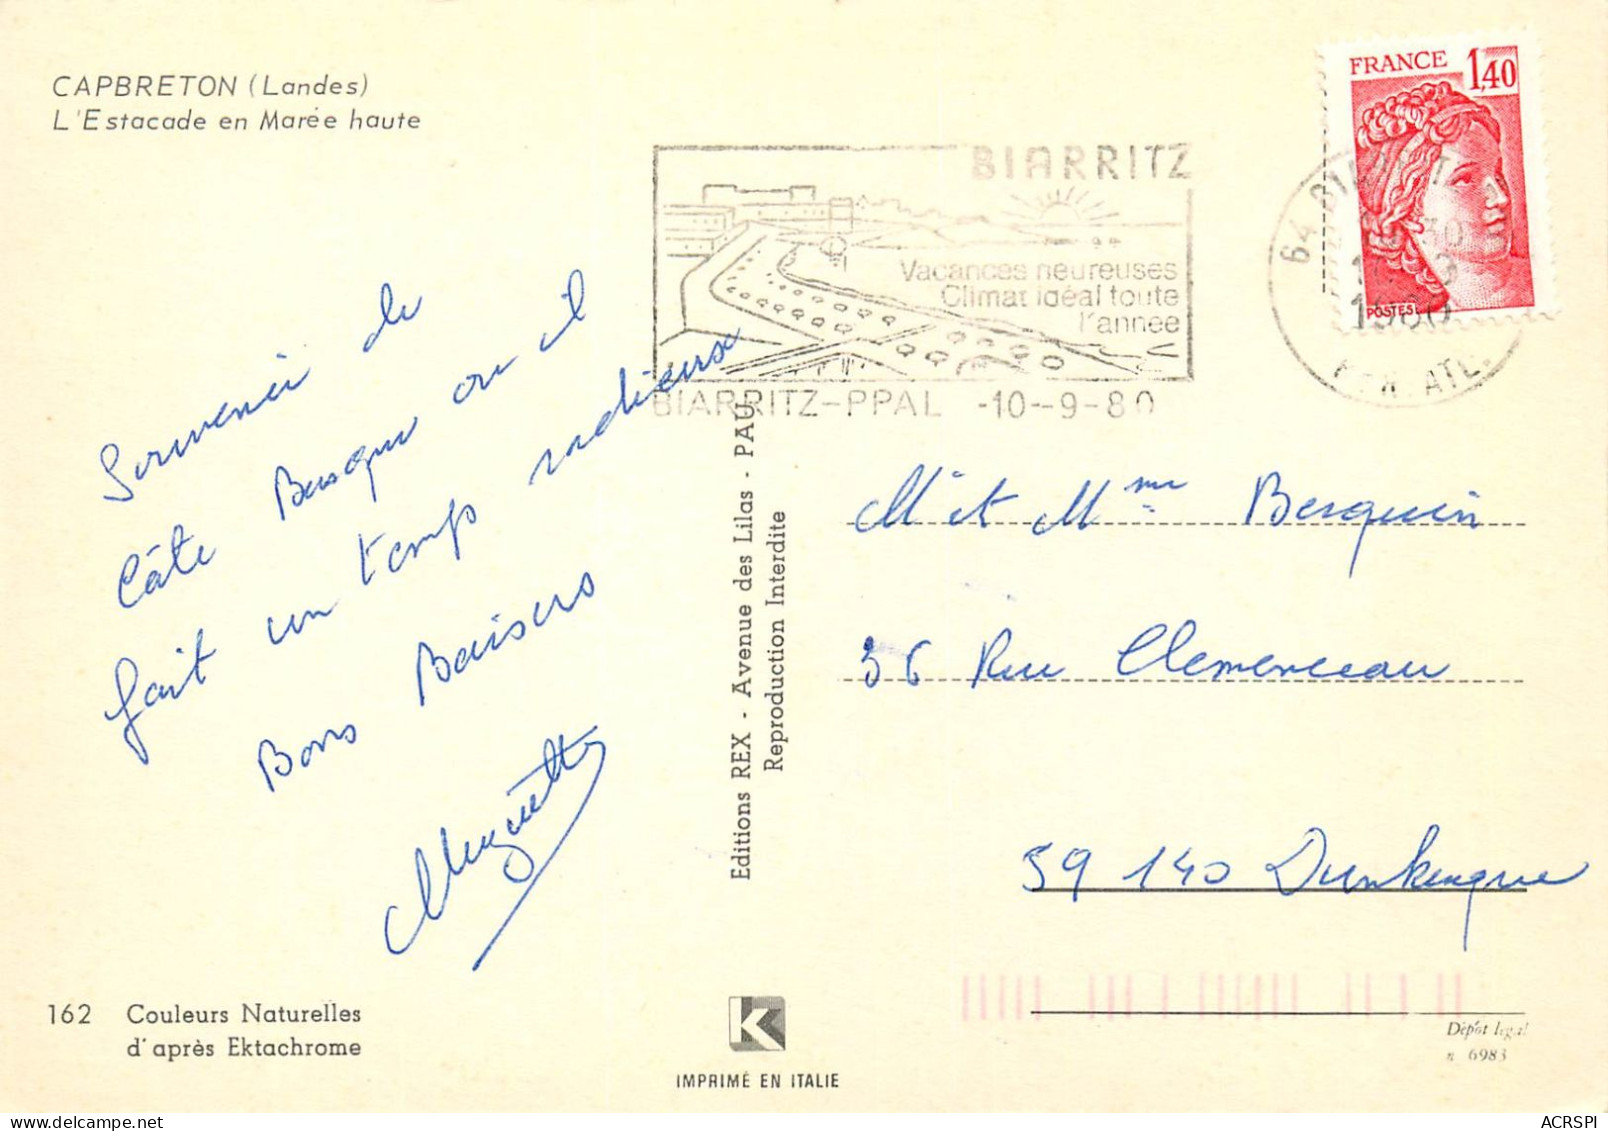 CAPBRETON (Landes)
L'Estacade en Marée haute
FRANCE 1,40
POSTES
BIARRITZ
Vacances heureuses
Climat idéal toute
l'année
BIARRITZ-PPAL -10--9-80
1980
Souvenir de
Côte Basque ou il
fait un temps radieux
Bons Baisers
Muguette
Editions REX - Avenue des Lilas - PAU
Reproduction Interdite
Mr et Mme Berquin
36 Rue Clemenceau
59 140 Dunkerque
162 Couleurs Naturelles
d'après Ektachrome
K
IMPRIMÉ EN ITALIE
Dépôt légal
n 6983
ACRSPI